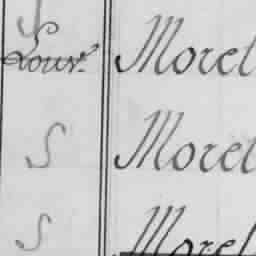 Louv.e Morel
S Morel
S Morel